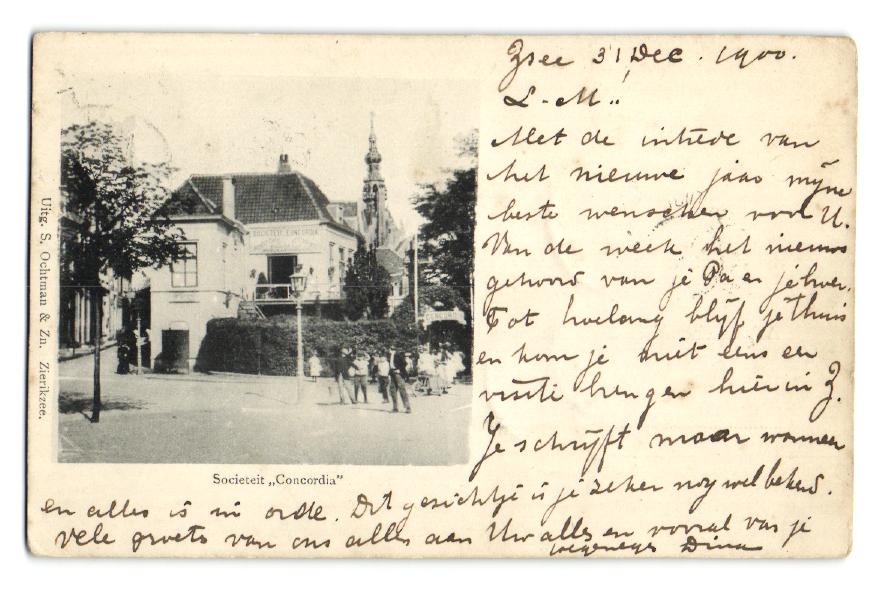 Zsee 31 Dec. 1900.
L. M.,
Met de intrede van
het nieuwe jaar mijne
beste wenschen voor U.
Van de week het nieuws
gehoord van je Pa en
Tot hoelang blijf je thuis
en kom je niet eens een
visite brengen hier in Z.
Je schrijft maar wanneer
en alles is in orde. Dit gezichtje is je zeker nog wel bekend.
Vele groets van ons alles aan Uw alles en vooral van je
Dina
SOCIETEIT CONCORDIA
Societeit „Concordia”
Uitg. S. Ochtman & Zn. Zierikzee.